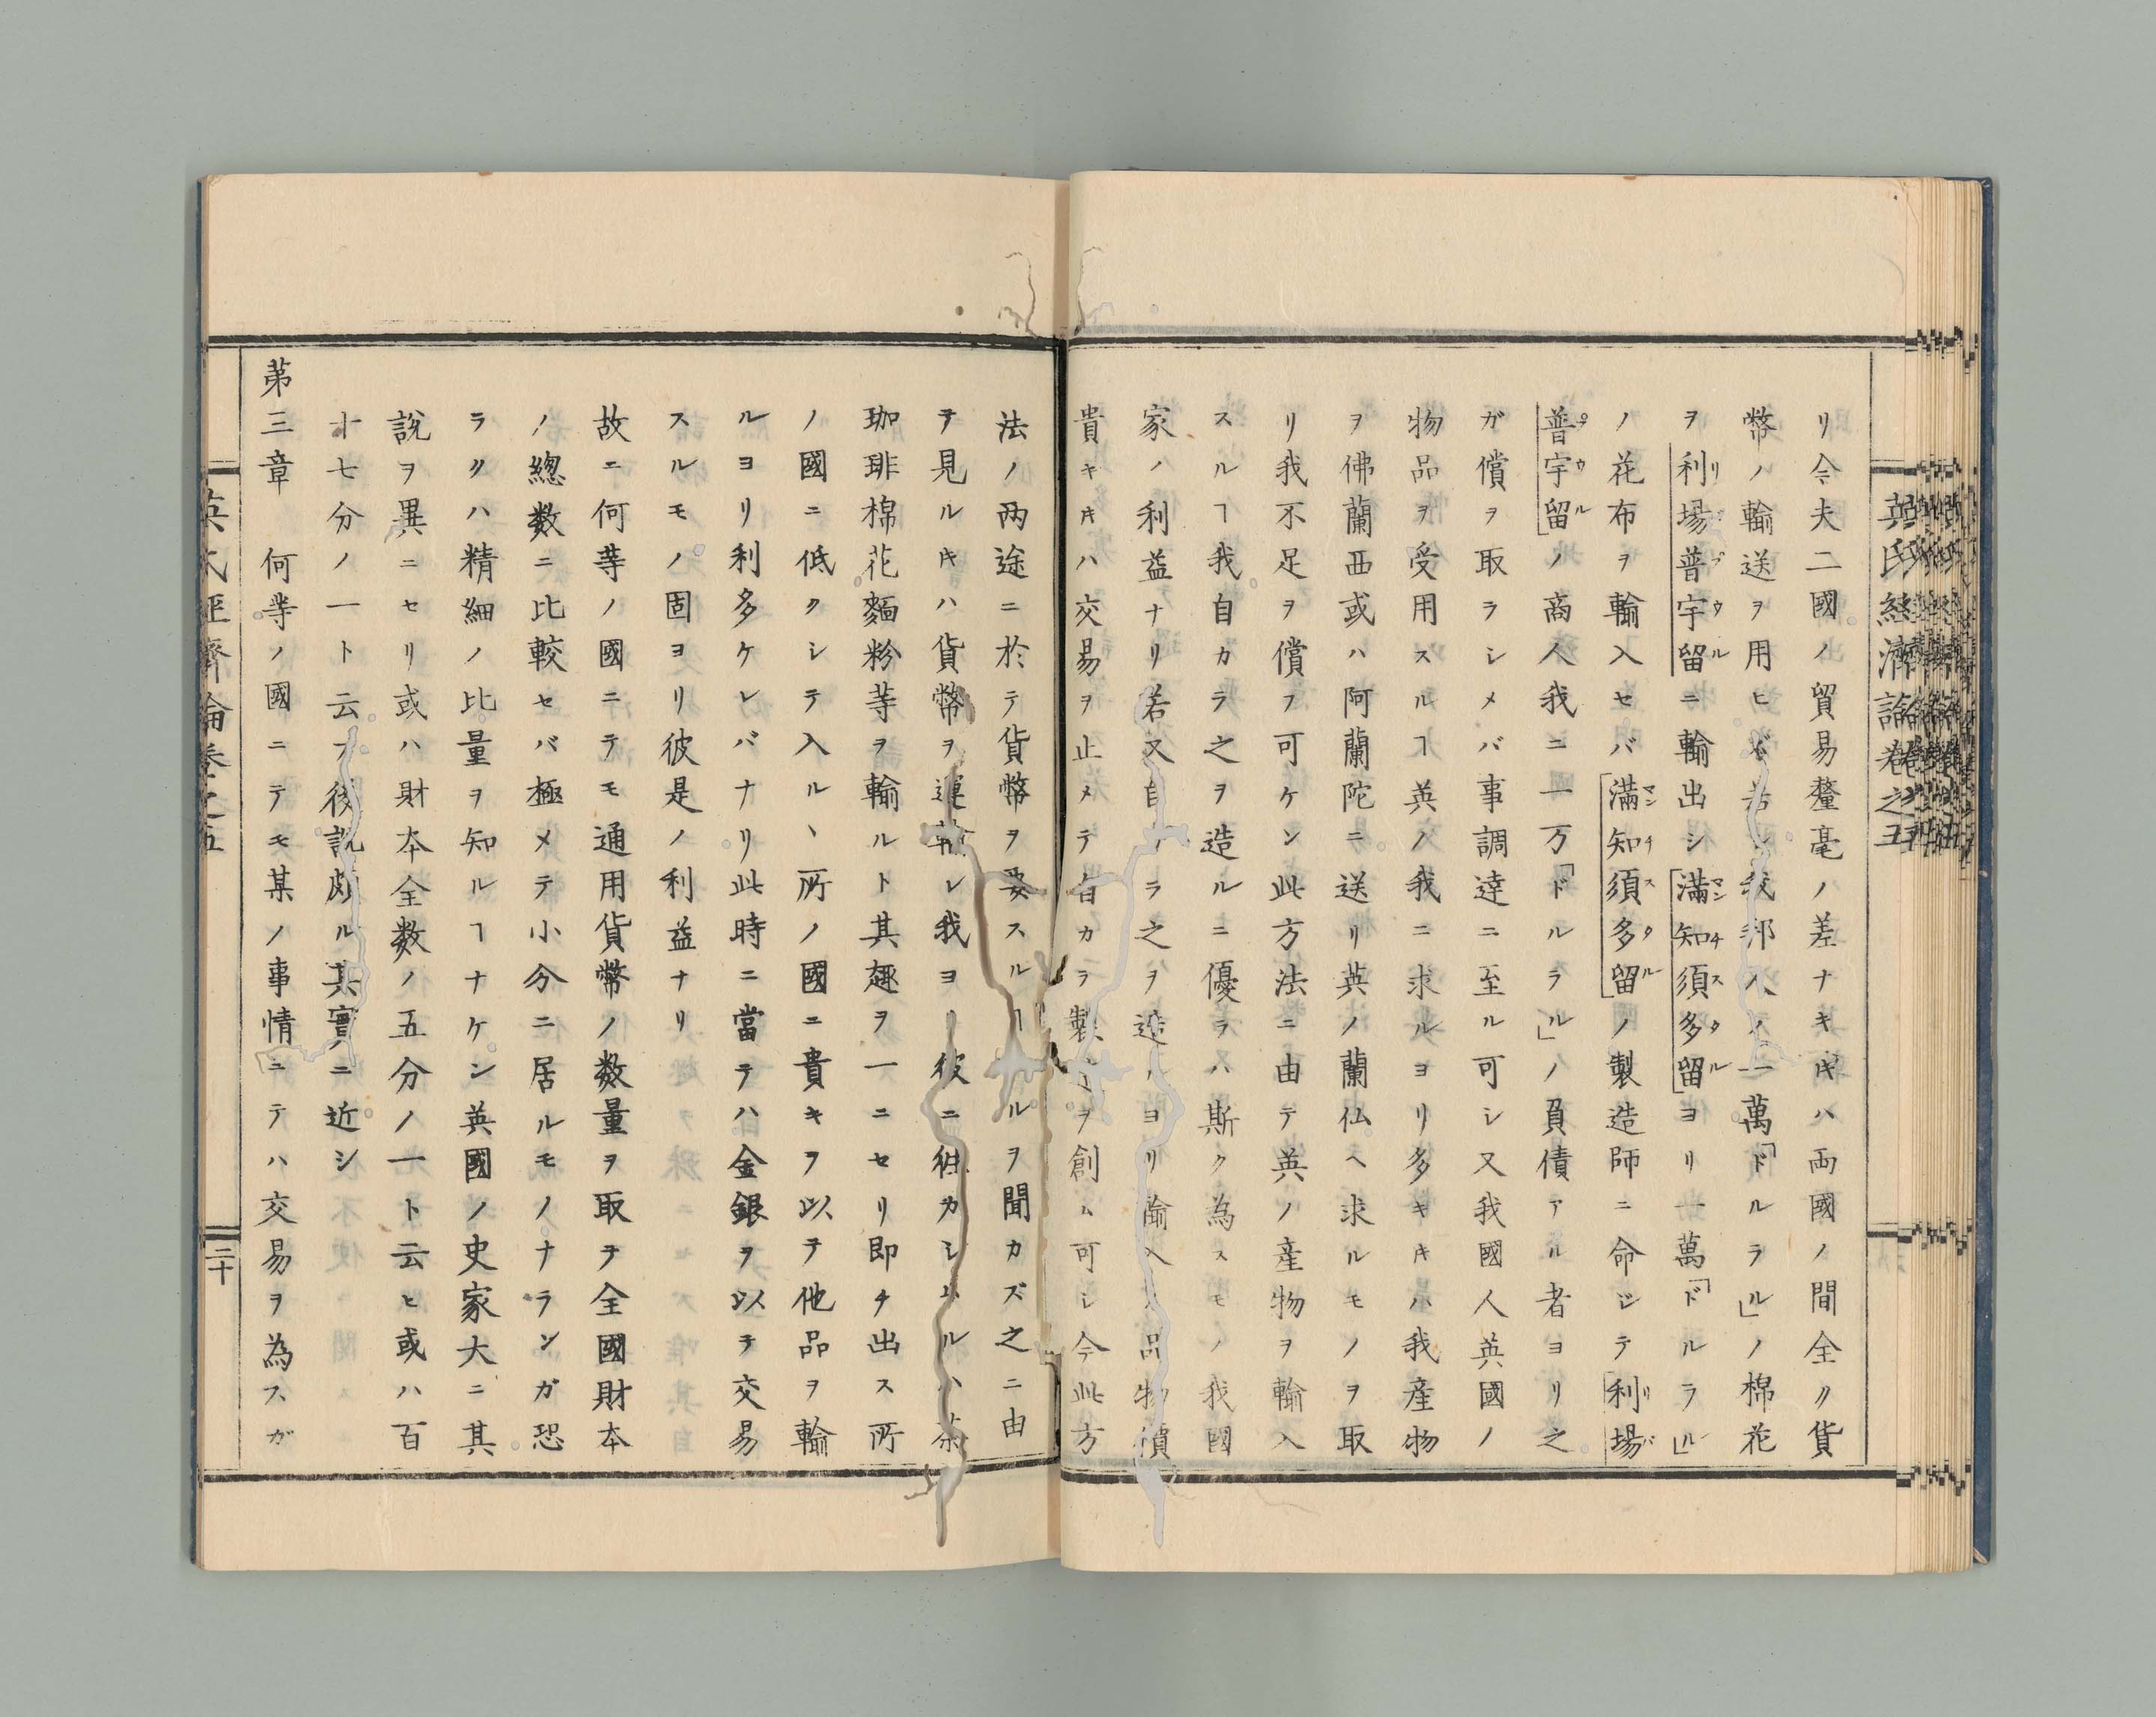 英氏經濟論卷之五
リ今夫二國ノ貿易釐毫ノ差ナキ𪜈ハ両國ノ間全ク貨
幣ノ輸送ヲ用ヒズ若シ我邦人ノ一萬「ドルラル」ノ棉花
ヲ利場普宇留ニ輸出シ滿知須多留ヨリ一萬「ドルラル」
ノ花布ヲ輸入セバ滿知須多留ノ製造師ニ命ジテ利場
普宇留ノ商人我ニ一万「ドルラル」ノ負債アル者ヨリ之
ガ償ヲ取ラシメバ事調達ニ至ル可シ又我國人英國ノ
物品ヲ受用スルヿ英ノ我ニ求ルヨリ多キ𪜈ハ我産物
ヲ佛蘭西或ハ阿蘭陀ニ送リ英ノ蘭仏ヘ求ルモノヲ取
リ我不足ヲ償フ可ケン此方法ニ由テ英ノ産物ヲ輸入
スルヿ我自カラ之ヲ造ルニ優ラハ斯ク為スモノ我國
家ノ利益ナリ若又自ラ之ヲ造ルヨリ輸入ノ品物價
貴キ𪜈ハ交易ヲ止メテ自カラ製造ヲ創ム可シ今此方
法ノ両途ニ於テ貨幣ヲ要スルヿルヲ聞カズ之ニ由
テ見ル𪜈ハ貨幣ヲ運輸シ我ヨリ彼ニ徃カシムルハ茶
珈琲棉花麺粉等ヲ輸ルト其趣ヲ一ニセリ即チ出ス所
ノ國ニ低クシテ入ルヽ所ノ國ニ貴キヲ以テ他品ヲ輸
ルヨリ利多ケレバナリ此時ニ當テハ金銀ヲ以テ交易
スルモノ固ヨリ彼是ノ利益ナリ
故ニ何等ノ國ニテモ通用貨幣ノ数量ヲ取テ全國財本
ノ總数ニ比較セバ極メテ小分ニ居ルモノナランガ恐
ラクハ精細ノ比量ヲ知ルヿナケン英國ノ史家大ニ其
說ヲ異ニセリ或ハ財本全数ノ五分ノ一ト云ヒ或ハ百
十七分ノ一ト云フ後說頗ル其實ニ近シ
苐三章　何等ノ國ニテモ某ノ事情ニテハ交易ヲ為スガ
英氏經濟論卷之五
二十